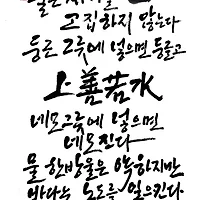 물은
고집하지 않는다
둥근 그릇에 넣으면 둥글고
上善若水
네모그릇에 넣으면
네모진다
물 한방울은 약하지만
바다는 노도를 일으킨다